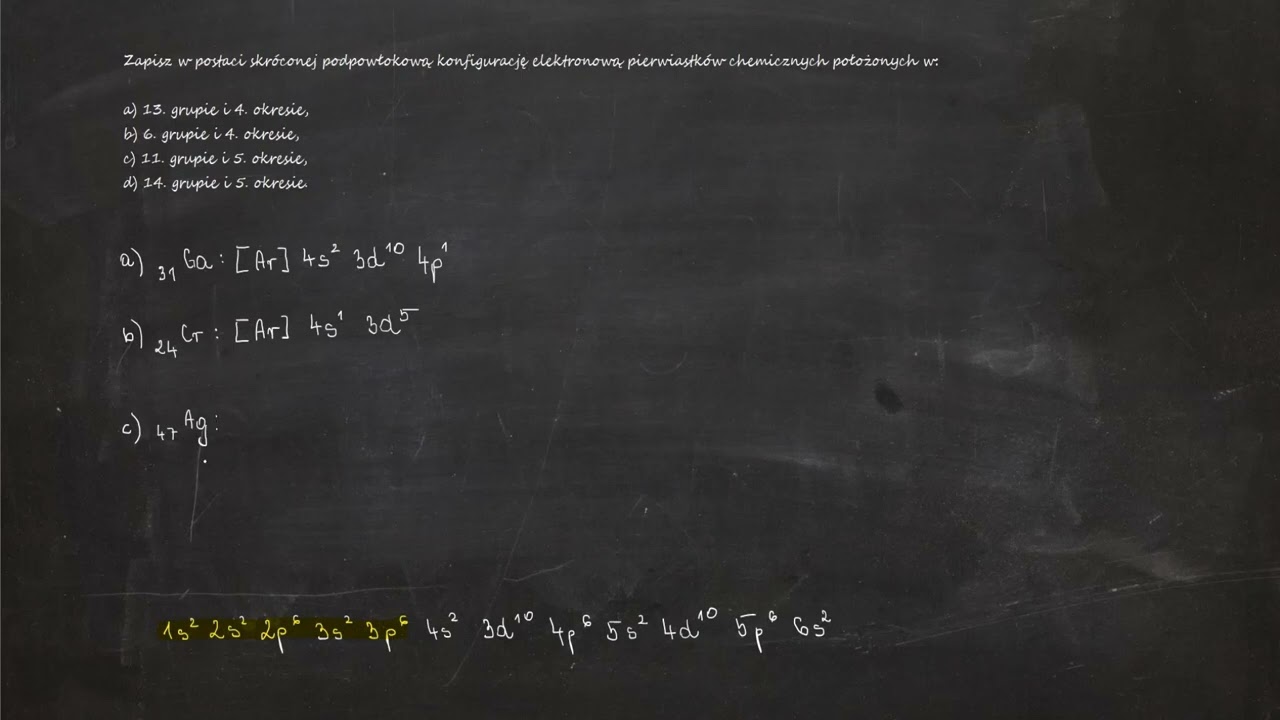 Zapisz w postaci skróconej podpowłokową konfigurację elektronową pierwiastków chemicznych położonych w:
a) 13. grupie i 4. okresie,
b) 6. grupie i 4. okresie,
c) 11. grupie i 5. okresie,
d) 14. grupie i 5. okresie.
a) ₃₁Ga: [Ar] 4s² 3d¹⁰ 4p¹
b) ₂₄Cr: [Ar] 4s¹ 3d⁵
c) ₄₇Ag:
1s² 2s² 2p⁶ 3s² 3p⁶ 4s² 3d¹⁰ 4p⁶ 5s² 4d¹⁰ 5p⁶ 6s²